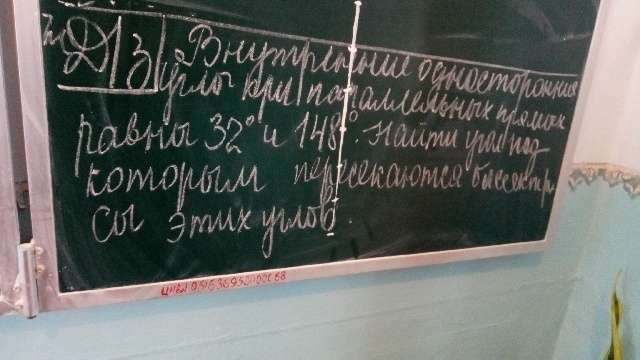 Д/З Внутренние односторонние
углы при параллельных прямых
равны 32° и 148°. Найти угол под
которым пересекаются биссектри
сы этих углов.